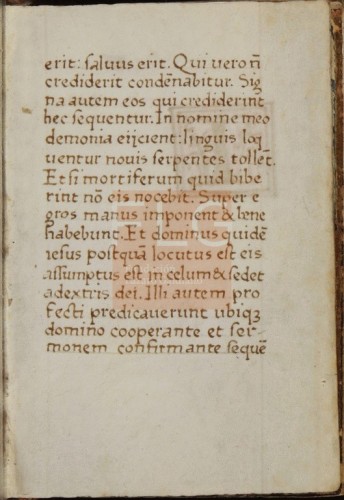 erit: saluus erit. Qui vero n̄
crediderit condēnabitur. Sig
na autem eos qui crediderint
hec sequentur. In nomine meo
demonia eijcient: linguis loq̄
uentur nouis serpentes tollēt.
Et si mortiferum quid bibe
rint nō eis nocebit. Super e
gros manus imponent & bene
habebunt. Et dominus quidē
iesus postquā locutus est eis
assumptus est in celum & sedet
a dextris dei. Illi autem pro
fecti predicauerunt ubiqꝫ
domino cooperante et ser
monem confirmante sequē